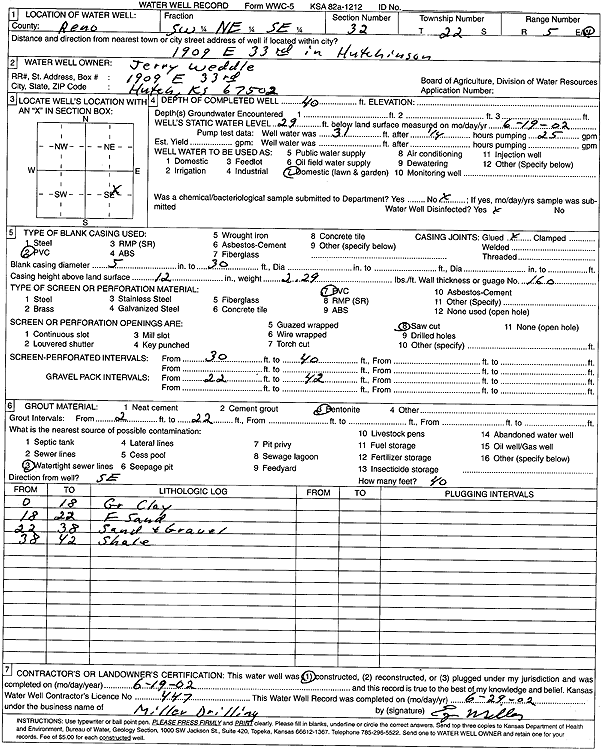 WATER WELL RECORD Form WWC-5 KSA 82a-1212 ID No.
1 LOCATION OF WATER WELL: Fraction Section Number Township Number Range Number
County: Reno SW ¼ NE ¼ SE ¼ 32 T 22 S R 5 E/W
Distance and direction from nearest town or city street address of well if located within city?
1909 E 33rd in Hutchinson
2 WATER WELL OWNER: Jerry Weddle
RR#, St. Address, Box # : 1909 E 33rd Board of Agriculture, Division of Water Resources
City, State, ZIP Code : Hutch, Ks 67502 Application Number:
3 LOCATE WELL'S LOCATION WITH AN "X" IN SECTION BOX:
N
NW NE
W E
SW SE X
S
4 DEPTH OF COMPLETED WELL 40 ft. ELEVATION:
Depth(s) Groundwater Encountered 1 ft. 2 ft. 3 ft.
WELL'S STATIC WATER LEVEL 29 ft. below land surface measured on mo/day/yr 6-19-02
Pump test data: Well water was 31 ft. after 14 hours pumping 25 gpm
Est. Yield gpm: Well water was ft. after hours pumping gpm
WELL WATER TO BE USED AS: 5 Public water supply 8 Air conditioning 11 Injection well
1 Domestic 3 Feedlot 6 Oil field water supply 9 Dewatering 12 Other (Specify below)
2 Irrigation 4 Industrial 7 Domestic (lawn & garden) 10 Monitoring well
Was a chemical/bacteriological sample submitted to Department? Yes No X ; If yes, mo/day/yrs sample was submitted
Water Well Disinfected? Yes X No
5 TYPE OF BLANK CASING USED: 5 Wrought iron 8 Concrete tile CASING JOINTS: Glued X Clamped
1 Steel 3 RMP (SR) 6 Asbestos-Cement 9 Other (specify below) Welded
2 PVC 4 ABS 7 Fiberglass Threaded
Blank casing diameter 5 in. to 30 ft., Dia in. to ft., Dia in. to ft.
Casing height above land surface 12 in., weight 2.29 lbs./ft. Wall thickness or guage No. 160
TYPE OF SCREEN OR PERFORATION MATERIAL: 7 PVC 10 Asbestos-Cement
1 Steel 3 Stainless Steel 5 Fiberglass 8 RMP (SR) 11 Other (Specify)
2 Brass 4 Galvanized Steel 6 Concrete tile 9 ABS 12 None used (open hole)
SCREEN OR PERFORATION OPENINGS ARE: 5 Guazed wrapped 8 Saw cut 11 None (open hole)
1 Continuous slot 3 Mill slot 6 Wire wrapped 9 Drilled holes
2 Louvered shutter 4 Key punched 7 Torch cut 10 Other (specify) ft.
SCREEN-PERFORATED INTERVALS: From 30 ft. to 40 ft., From ft. to ft.
From ft. to ft., From ft. to ft.
GRAVEL PACK INTERVALS: From 22 ft. to 42 ft., From ft. to ft.
From ft. to ft., From ft. to ft.
6 GROUT MATERIAL: 1 Neat cement 2 Cement grout 3 Bentonite 4 Other
Grout Intervals: From 2 ft. to 22 ft., From ft. to ft., From ft. to ft.
What is the nearest source of possible contamination: 10 Livestock pens 14 Abandoned water well
1 Septic tank 4 Lateral lines 7 Pit privy 11 Fuel storage 15 Oil well/Gas well
2 Sewer lines 5 Cess pool 8 Sewage lagoon 12 Fertilizer storage 16 Other (specify below)
3 Watertight sewer lines 6 Seepage pit 9 Feedyard 13 Insecticide storage
Direction from well? SE How many feet? 40
FROM TO LITHOLOGIC LOG FROM TO PLUGGING INTERVALS
0 18 Gr Clay
18 22 F Sand
22 38 Sand & Gravel
38 42 Shale
7 CONTRACTOR'S OR LANDOWNER'S CERTIFICATION: This water well was (1) constructed, (2) reconstructed, or (3) plugged under my jurisdiction and was
completed on (mo/day/year) 6-19-02 and this record is true to the best of my knowledge and belief. Kansas
Water Well Contractor's Licence No 447 This Water Well Record was completed on (mo/day/yr) 6-29-02
under the business name of Miller Drilling by (signature)
INSTRUCTIONS: Use typewriter or ball point pen. PLEASE PRESS FIRMLY and PRINT clearly. Please fill in blanks, underline or circle the correct answers. Send top three copies to Kansas Department of Health
and Environment, Bureau of Water, Geology Section, 1000 SW Jackson St., Suite 420, Topeka, Kansas 66612-1367. Telephone 785-296-5522. Send one to WATER WELL OWNER and retain one for your
records. Fee of $5.00 for each constructed well.